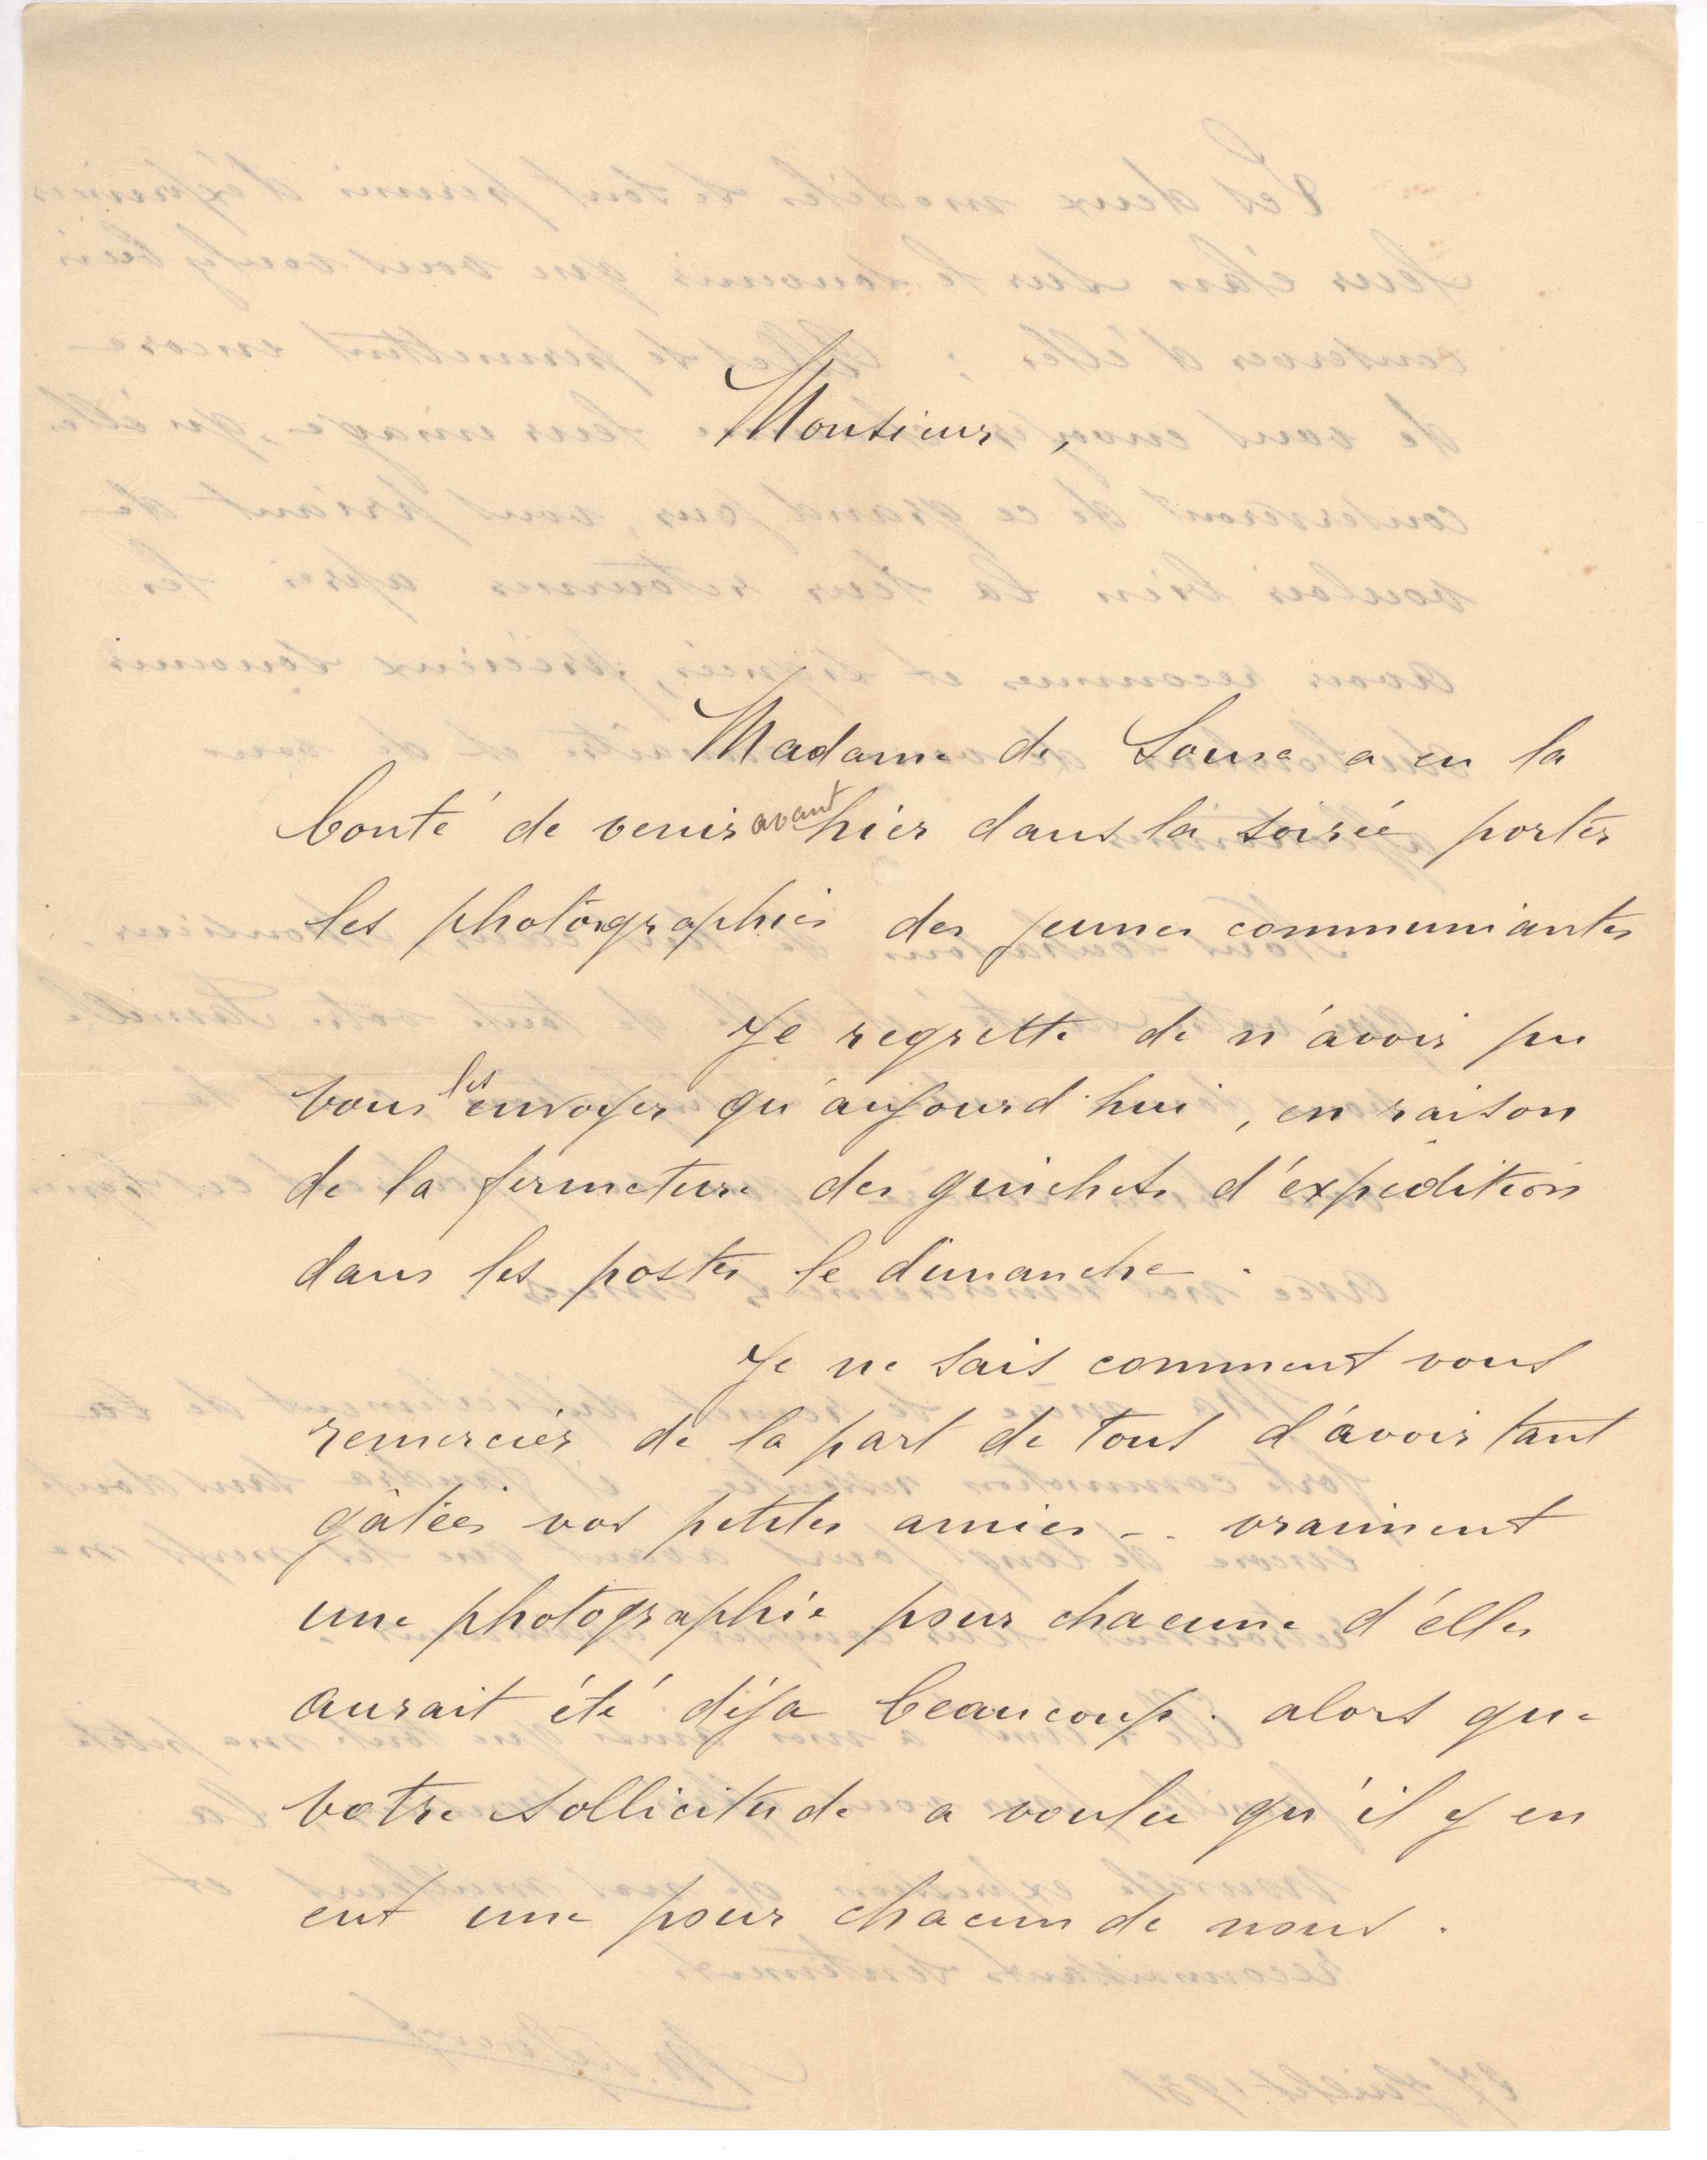 Monsieur,
Madame de Sousa a eu la
bonté de venir avant hier dans la soirée porter
les photographies des jeunes communiantes
Je regrette de n'avoir pu
vous les envoyer qu'aujourd'hui, en raison
de la fermeture des guichets d'expédition
dans les postes le dimanche.
Je ne sais comment vous
remercier de la part de tous d'avoir tant
gâtées vos petites amies - . vraiment
une photographie pour chacune d'elles
aurait été déja beaucoup. alors que
votre sollicitude a voulu qu'il y en
eut une pour chacun de nous.